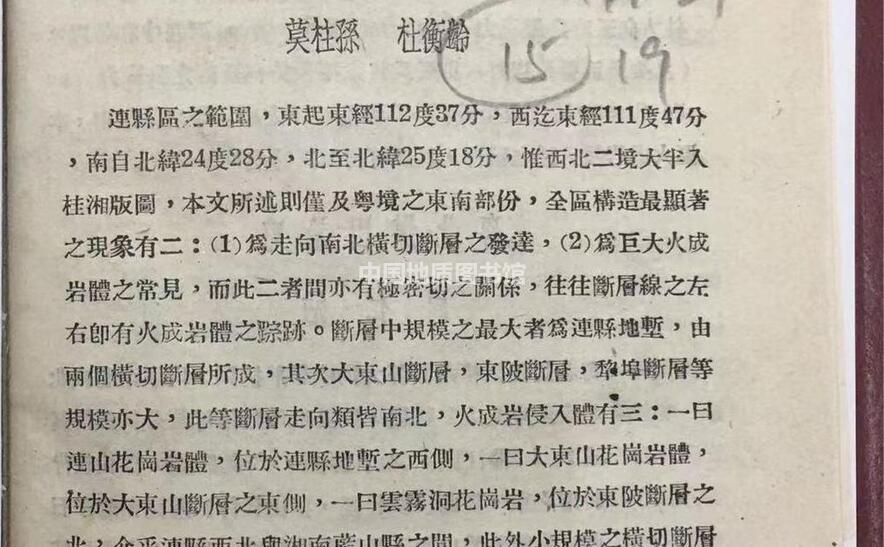 莫柱孫 杜衡齡
15 19
連縣區之範圍，東起東經112度37分，西迄東經111度47分
，南自北緯24度28分，北至北緯25度18分，惟西北二境大半入
桂湘版圖，本文所述則僅及粤境之東南部份，全區構造最顯著
之現象有二：(1)爲走向南北橫切斷層之發達，(2)爲巨大火成
中国地质图书馆
岩體之常見，而此二者間亦有極密切之關係，往往斷層線之左
右卽有火成岩體之踪跡。斷層中規模之最大者爲連縣地塹，由
兩個橫切斷層所成，其次大東山斷層，東陂斷層，犂埠斷層等
規模亦大，此等斷層走向類皆南北，火成岩侵入體有三：一曰
連山花崗岩體，位於連縣地塹之西側，一曰大東山花崗岩體，
位於大東山斷層之東側，一曰雲霧洞花崗岩，位於東陂斷層之
北，介乎連縣西北與湖南藍山縣之間，此外小規模之橫切斷層